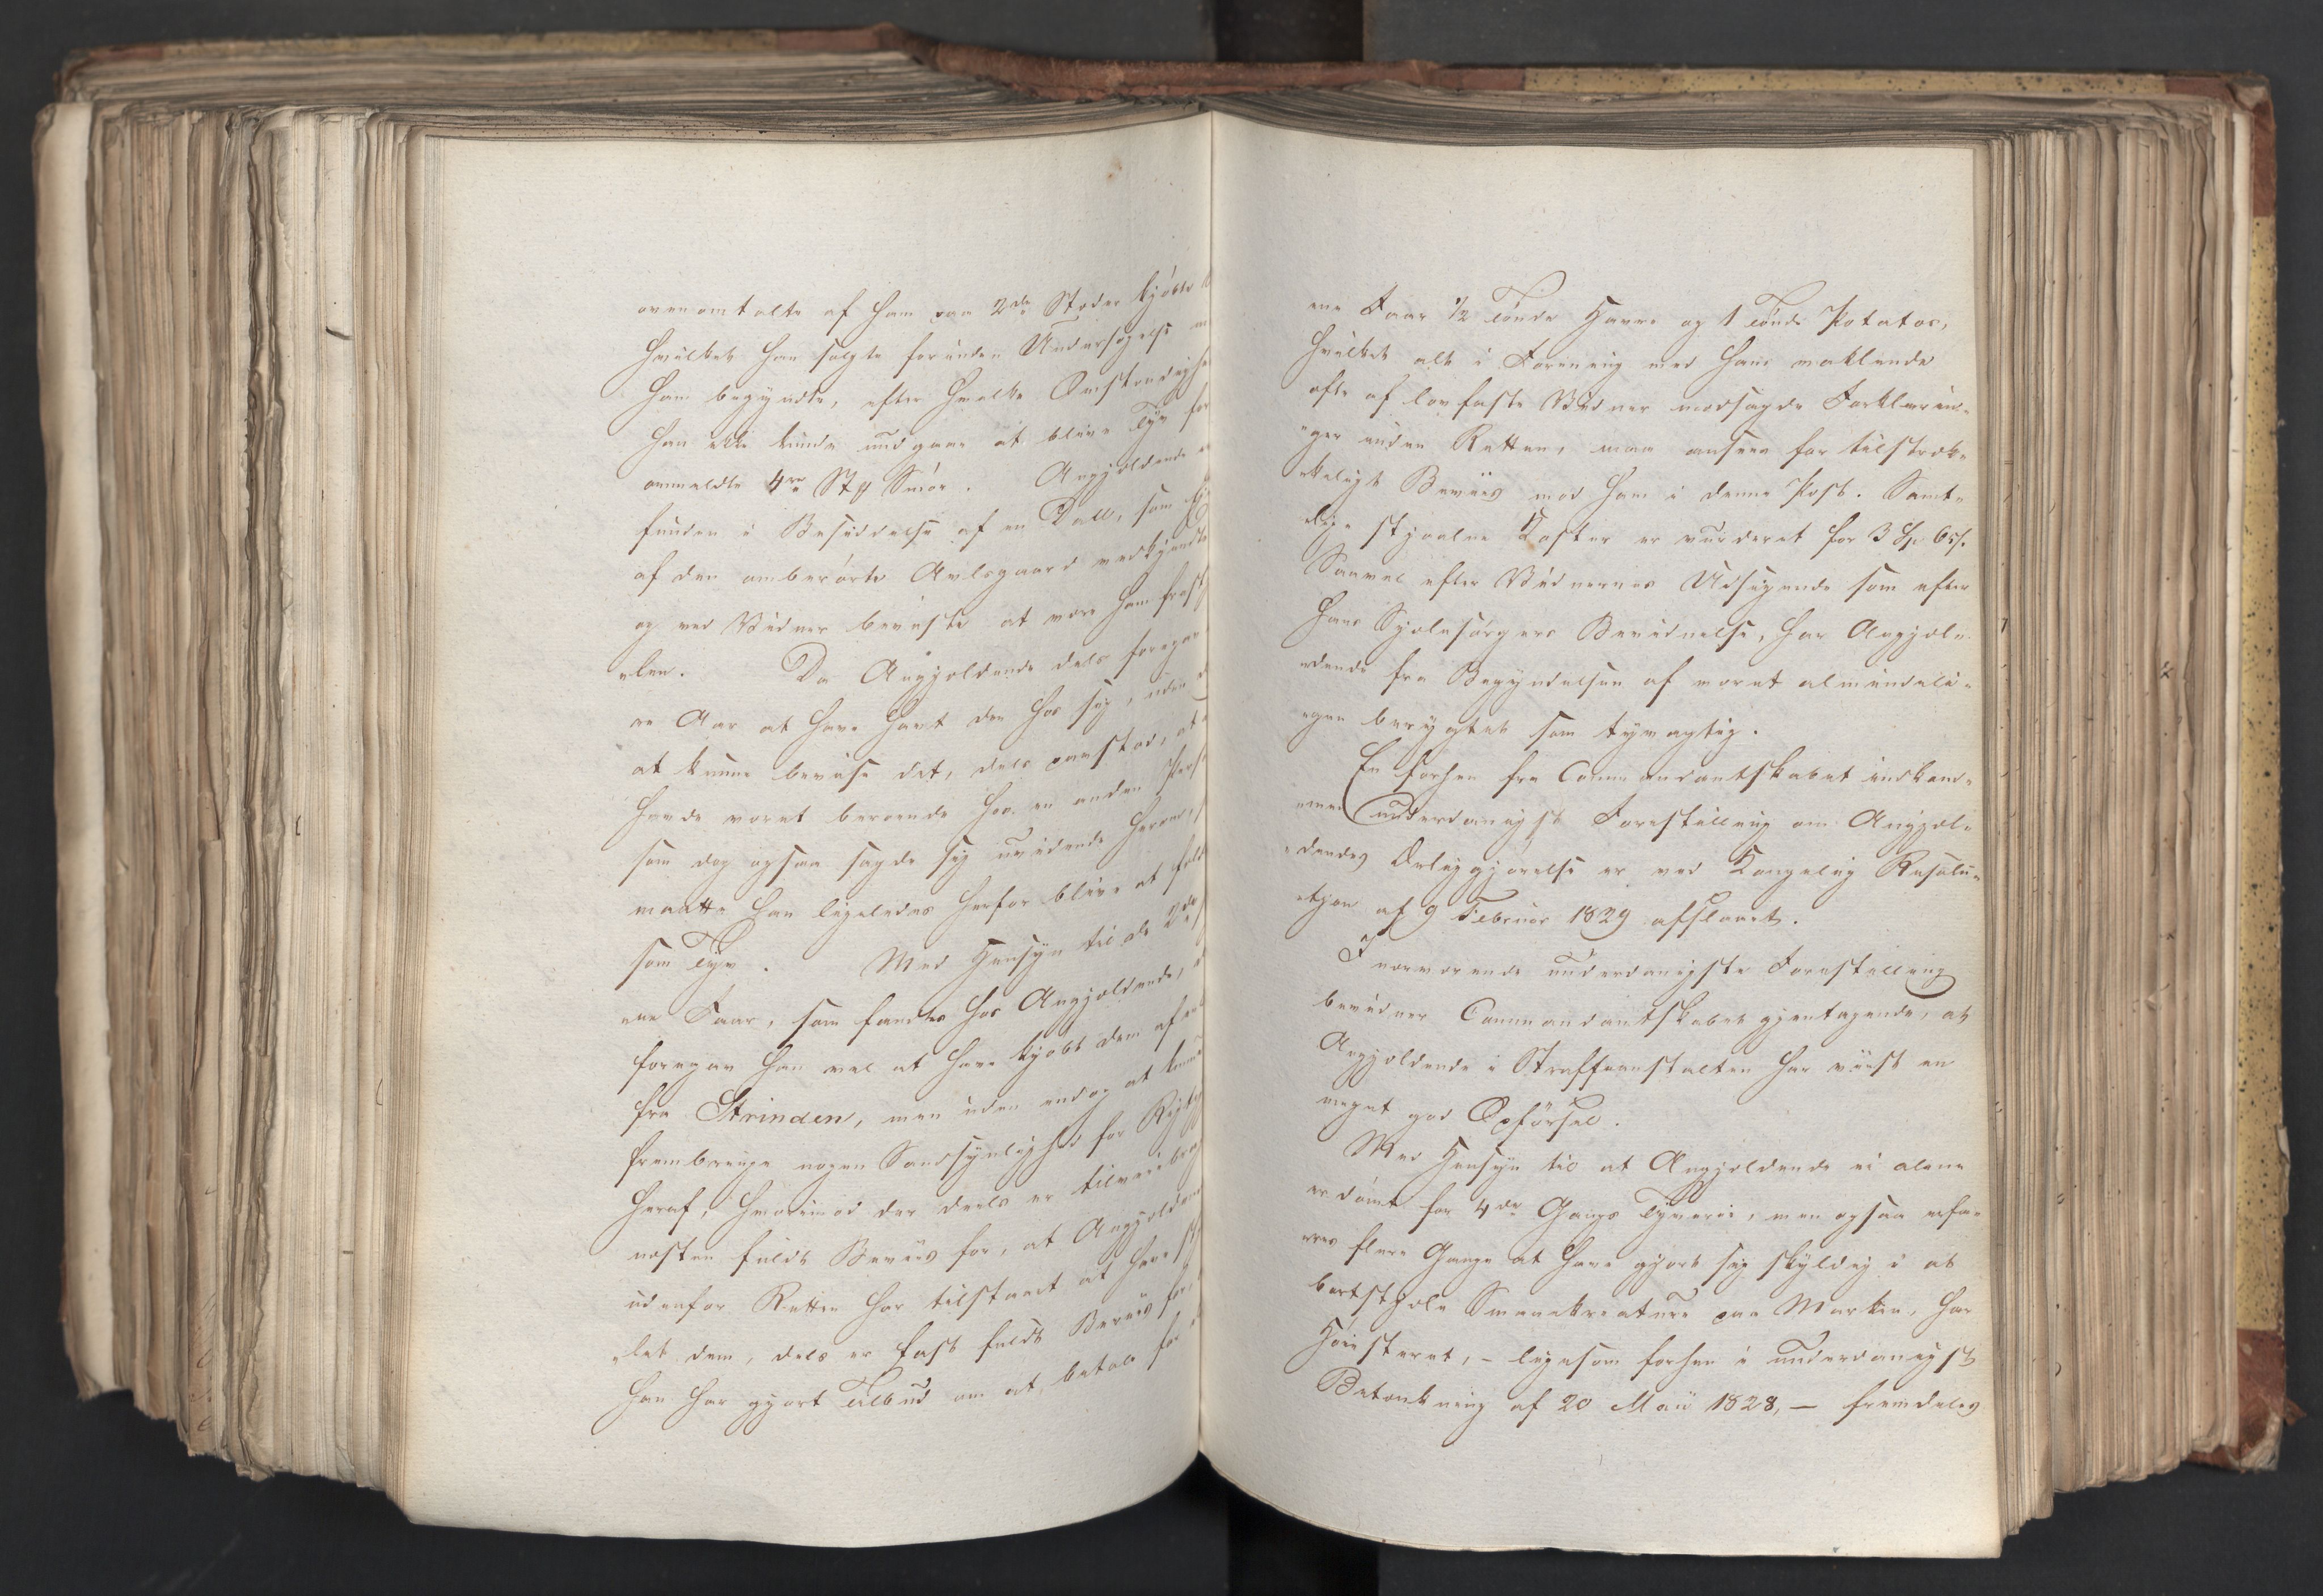 ovenomtalte af ham paa 2de Steder kjøbte
hvilket han solgte forinden Undersøgelse
ham begyndte, efter hvilke Omstændighe
han ikke kunde undgaae at blive Tyv for
anmeldte 4re St ℔ Smør. Angjældende
funden i Besiddelse af en Dall, som
af den omberørte Avlsgaard vedkjendte
og ved Vidner beviiste at være ham frast
elen. Da Angjældende dels foregav
re Aar at have havt den hos sig, uden
at kunne bevise det, dels paastod, at
havde været beroende hos en anden Pers
som dog ogsaa sagde sig uvidende herom,
maatte han ligeledes herfor blive at fæld
som Tyv. Med Hensyn til de 2de
ene Faar, som fandtes hos Angjældende,
foregav han vel at have kjøbt dem af en
fra Strinden, men uden endog at kunne
frembringe nogen Sandsynlighed for Rigtig
heraf, hvorimod der deels er tilveiebrag
næsten fuldt Beviis for, at Angjælden
udenfor Retten har tilstaaet at have stj
elet dem, dels er fast fuldt Beviis for,
han har gjort Tilbud om at betale for
ene Faar ½ Tønde Havre og 1 Tønde Potatos,
hvilket alt i Forening med hans vaklende
ofte af lovfaste Vidner modsagde Forklarin-
ger inden Retten, maa ansees for tilstræk-
keligt Beviis mod ham i denne Post. Samt-
lige stjaalne Koster er vurderet for 3 Sp. 65 s.
Saavel efter Vidnernes Udsigende som efter
hans Sjælesørgers Bevidnelse, har Angjæl-
dende fra Begyndelsen af været almindeli-
gen berygtet som tyvagtig.
En forhen fra Commandantskabet indkom-
men underdanigst Forestilling om Angjæl-
dendes Ærliggjørelse er ved Kongelig Resolu-
tjon af 9 Februar 1829 afslaaet.
I nærværende underdanigste Forestilling
bevidner Commandantskabet gjentagende, at
Angjældende i Straffeanstalten har viist en
meget god Opførsel.
Med Hensyn til at Angjældende ei alene
er dømt for 4de Gangs Tyverie, men ogsaa erfa-
res flere Gange at have gjort sig skyldig i at
bortstjæle Smaaekreature paa Marken, har
Høiesteret, – ligesom forhen i underdanigst
Betænkning af 20 Maii 1828, – fremdeles